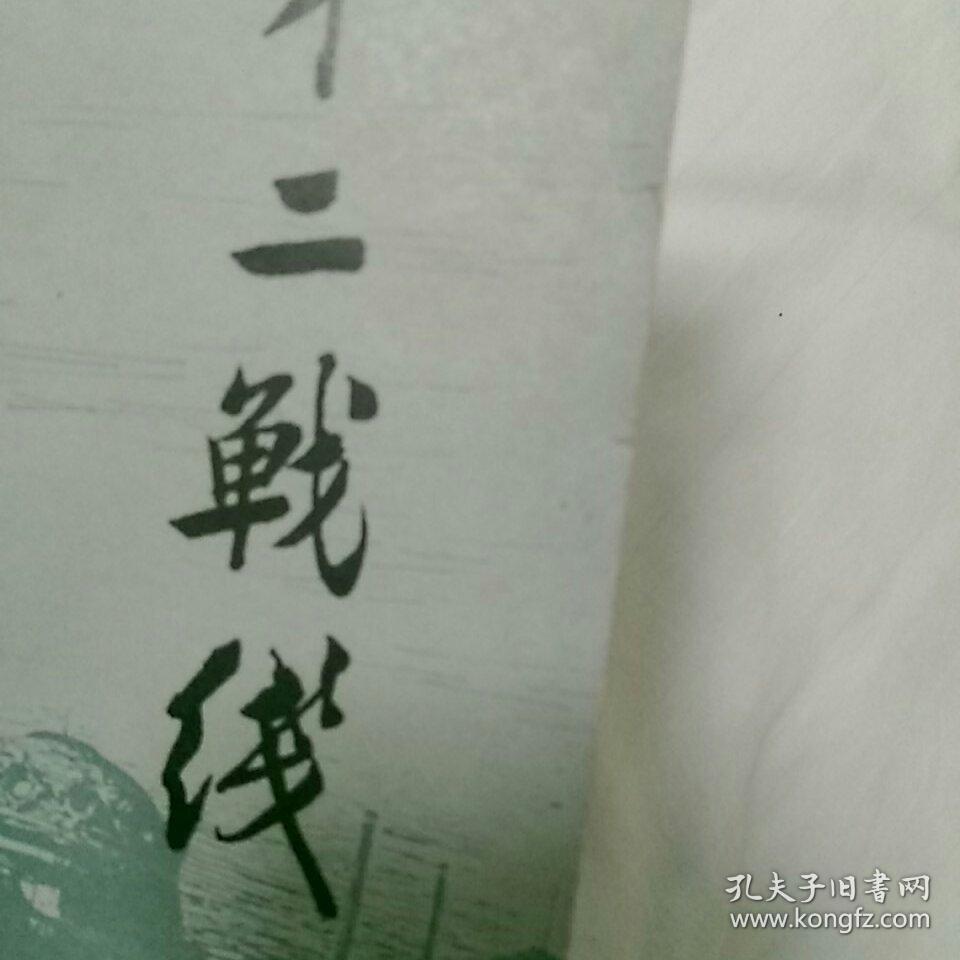 二戰线
孔夫子旧書网
www.kongfz.com